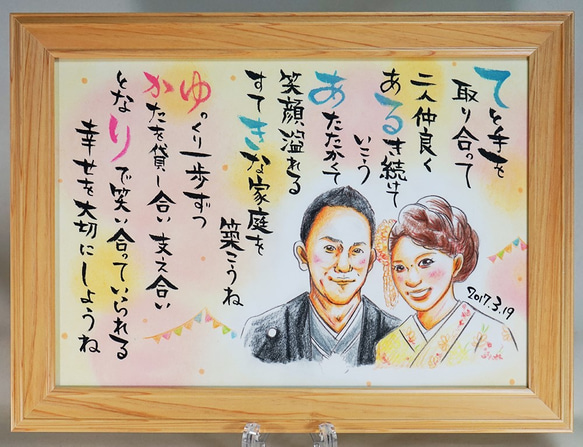 てと手を
取り合って
二人仲良く
あるき続けて
いこう
あたたかくて
笑顔溢れる
すてきな家庭を
築こうね
ゆっくり一歩ずつ
かたを貸し合い支え合い
となりで笑い合っていられる
幸せを大切にしようね
2017.3.19